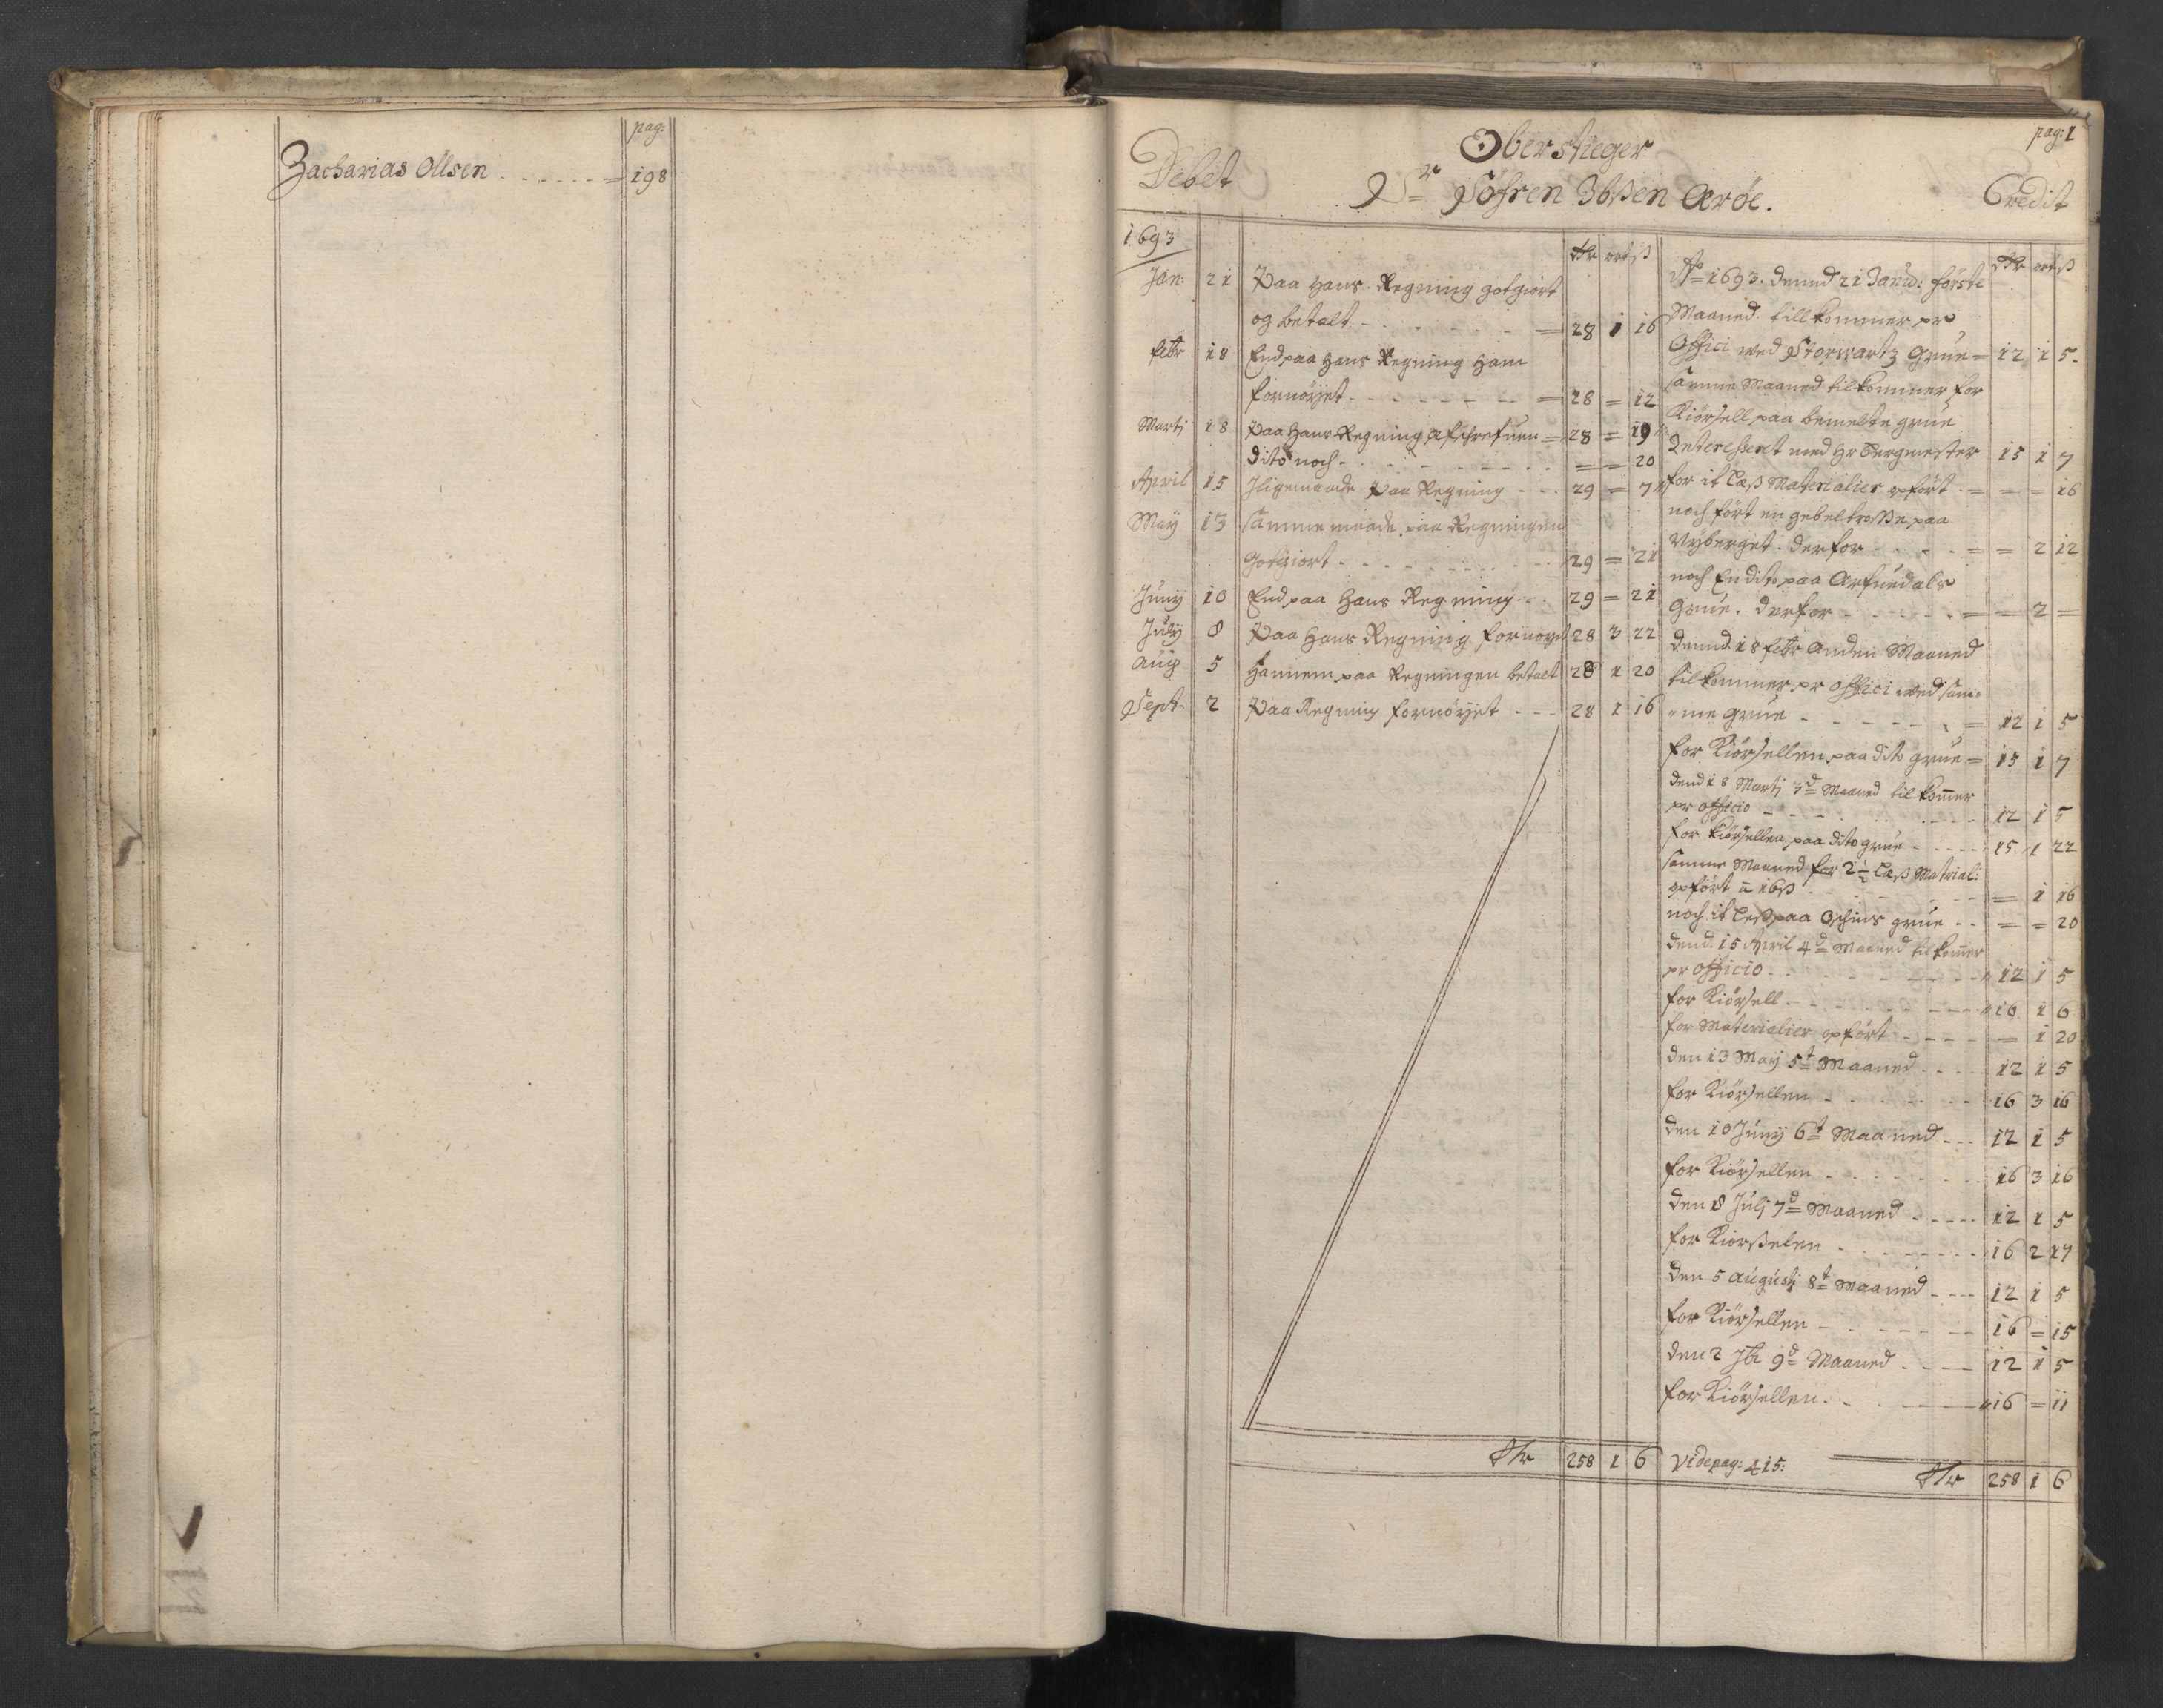 pag:
Zacharias Ollsen - - - - - - = 198
pag: 1
Oberstieger
Debet Sr Söfren Ibßen Aröe. Credit
1693
Rdr ort ß
Jan: 21 Paa Hans Regning godgiort
og betalt - - - - - - = 28 1 16
febr 18 End paa Hans Regning Ham
fornöyet - - - - - - = 28 = 12
Martj 18 Paa Hans Regning afschrefuen = 28 = 19
dito noch - - - - - - = = 20
April 15 Iligemaade Paa Regning - - - 29 = 7
Maÿ 13 samme maade paa Regningen
Godgiort - - - - - - 29 = 21
Junÿ 10 End paa Hans Regning - - 29 = 21
July 8 Paa Hans Regning fornoyet 28 3 22
Aug 5 Hannem paa Regningen betalt 28 1 20
Sept. 2 Paa Regning fornöyet - - - 28 1 16
Rdr 258 1 6
Rdr ort ß
Ao 1693. dennd 21 Janu: förste
Maaned. tillkommer pr
Offici ved Storwartz Grue = 12 1 5
samme Maaned tilkommer for
Kiörsell paa bemelte grue
Interesseret med Hr Bergmester 15 1 7
for it Læß Materialier opfört - = - = 16
noch fört en gebeltroße paa
Nyberget. derfor - - - - = = 2 12
noch En dito paa Arfuedals
Grue. derfor - - - - - = = 2 =
dennd 18 febr Anden Maaned
tilkommer pr Offici wed sam=
=me grue - - - - - - = 12 1 5
for Kiörsellen paa dito grue = 15 1 7
dend 18 Martj 3d Maaned til komer
pr officio - - - - - - 12 1 5
for Kiörsellen paa dito grue - - - - 15 1 22
samme Maaned for 2½ Læß Matrial:
opfört a 16ß - - - - = 1 16
noch it Leß paa grue - - = = 20
dend: 15 April 4d Maaned tilkomer
pr officio - - - - - - 12 1 5
for Kiörsell - - - - - - 16 1 6
for Materialier opfört - - - - = 1 20
den 13 May 5t Maaned - - - 12 1 5
for Kiörsellen - - - - - - 16 3 16
den 10 Junÿ 6t Maaned - - - 12 1 5
for Kiörsellen - - - - - - 16 3 16
den 8 Julj 7d Maaned - - - - 12 1 5
for Kiörßelen - - - - - - 16 2 17
den 5 Augusti 8t Maaned - - - 12 1 5
for Kiörsellen - - - - - - 16 = 15
den 2 7br 9d Maaned - - - - 12 1 5
for Kiörsellen. - - - - - - 16 = 11
Vide pag: 415: Rdr 258 1 6